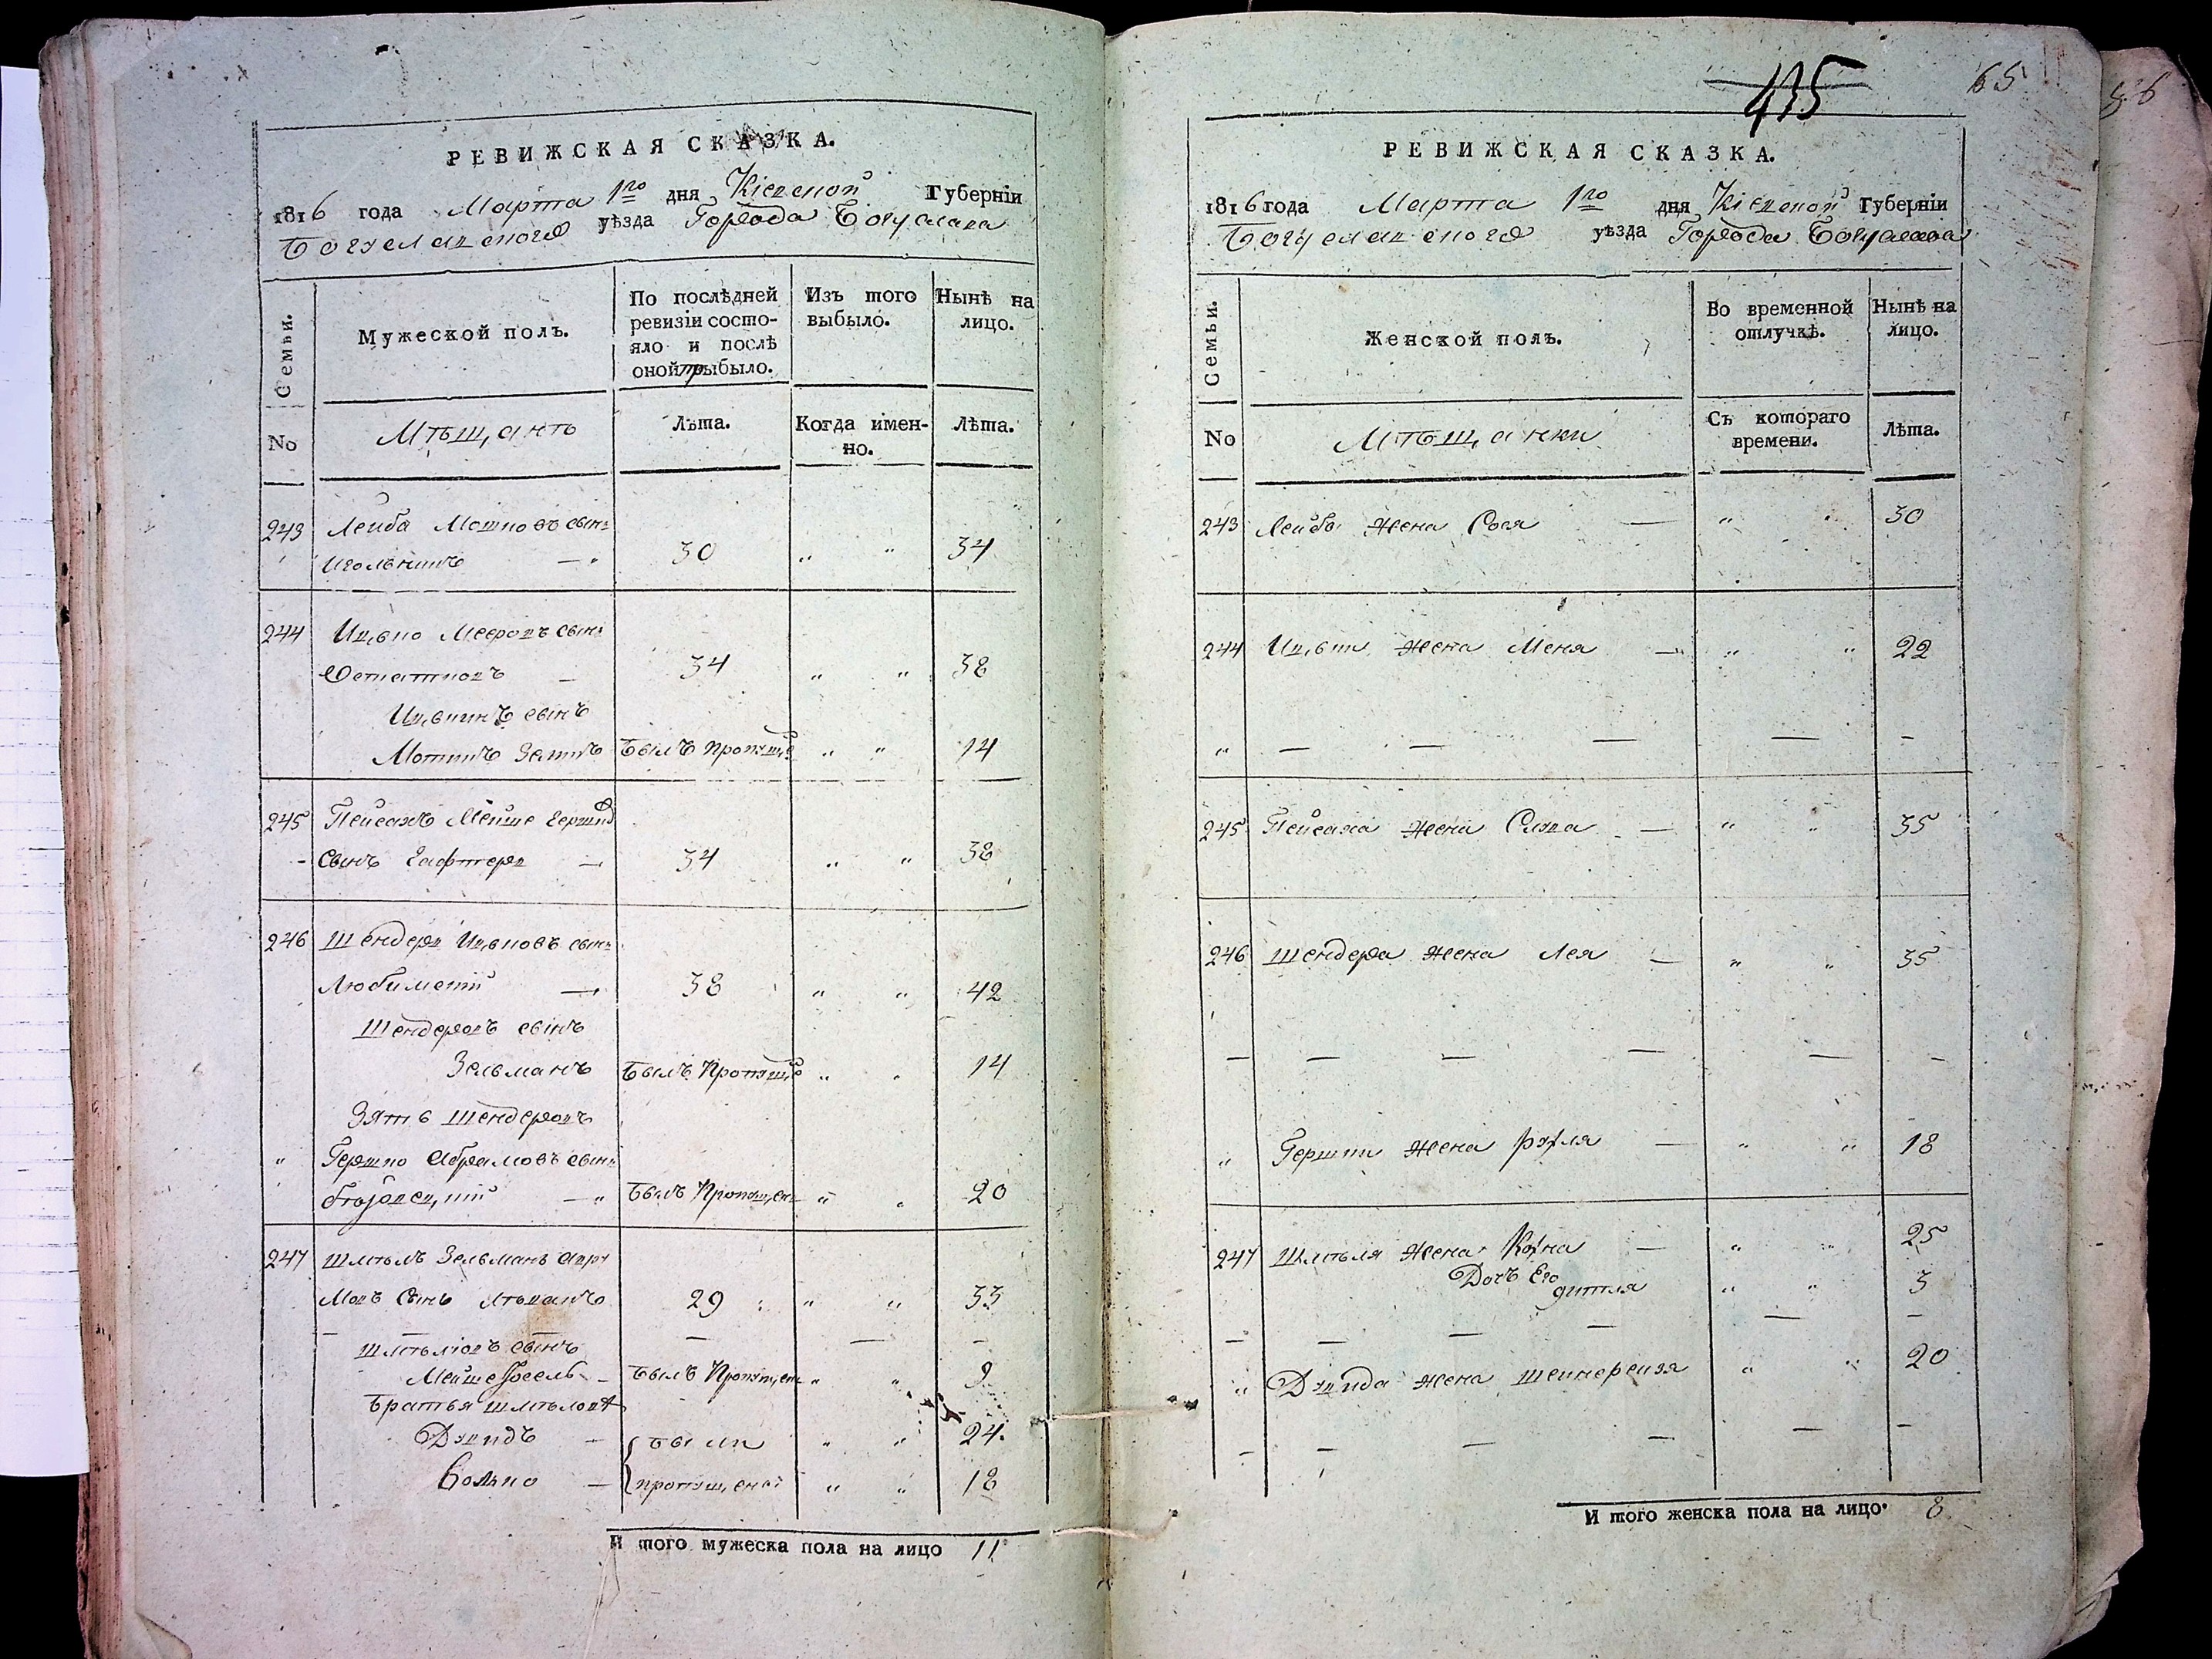 РЕВИЖСКАЯ СКАЗКА.
1816 года Марта 1го дня Кіевской Губерніи
Богуславского уѣзда Города Богуслава
Семьи.
Мужеской полъ.
По послѣдней ревизіи состо-
яло и послѣ
оной прыбыло.
Изъ того
выбыло.
Нынѣ на
лицо.
No
Мѣщанъ
Лѣта.
Когда имен-
но.
Лѣта.
243 Лейба Мошковъ сынъ
Игольникъ — 30 " " 34
244 Ицько Мееровъ сынъ
34 " " 38
Ицькинъ сынъ
былъ пропущ " " 14
245 Пейсахъ Мейше Герш
сынъ — 34 " " 38
246 Шендеръ Ицковъ сынъ
— 38 " " 42
Шендеровъ сынъ
Зельманъ былъ пропущ " " 14
Зять Шендеровъ
" Гершко Абрамовъ сынъ
— " былъ пропущен " " 20
247 Шмѣлъ Зельманъ
сынъ 29 " " 33
Шмѣлювъ сынъ
Мейше былъ пропущен " " 9
Братья Шмѣлова
Давидъ — были " " 24.
Волько — пропущеній " " 18
И того мужеска пола на лицо 11
435
65
РЕВИЖСКАЯ СКАЗКА.
1816 года Марта 1го дня Кіевской Губерніи
Богуславского уѣзда Города Богуслава
Семьи.
Женской полъ.
Во временной
отлучкѣ.
Нынѣ на
лицо.
No
Мѣщанки
Съ котораго
времени.
Лѣта.
243 Лейбы жена Сося — " " 30
244 Ицьки жена Меня — " " 22
" — — — — -
245 Пейсаха жена Слува — " " 35
246 Шендера жена Лея — " " 35
— — — — — -
" Гершки жена Рухля — " " 18
247 Шмѣля жена — " " 25
Дочь Его
дитля " " 3
— — — — — —
" Давида жена Шейнерейзя " " 20
- — — — — —
И того женска пола на лицо. 8